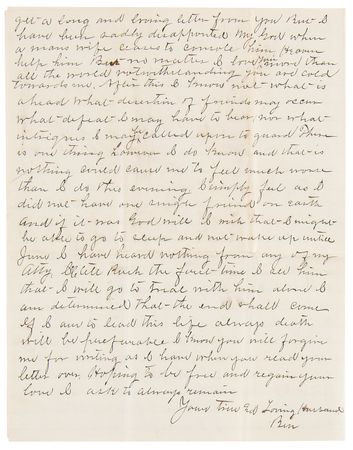 get a long and loving letter from you But I
have been sadly disappointed My God when
a mans wife ceases to console him Heaven
help him But no matter I love you more than
all the world notwithstanding you are cold
towards me. After this I know not what is
ahead what desertion of friends may occur
what defeat I may have to bear nor what
intrigues I may called upon to guard There
is one thing however I do know and that is
nothing could cause me to feel much worse
than I do this evening I simply feel as I
did not have one single friend on earth
And if it was God will I wish that I might
be able to go to sleep and not wake up until
June I have heard nothing from any of my
Atty I Rush the first time I see him
that I will go to trial with him alone I
am determined that the end shall come
If I am to lead this life always death
will be preferable I know you will forgive
me for writing as I have when you read your
letter over. Hoping to be free and regain your
love I ask to always remain
Your true and Loving Husband
Ben